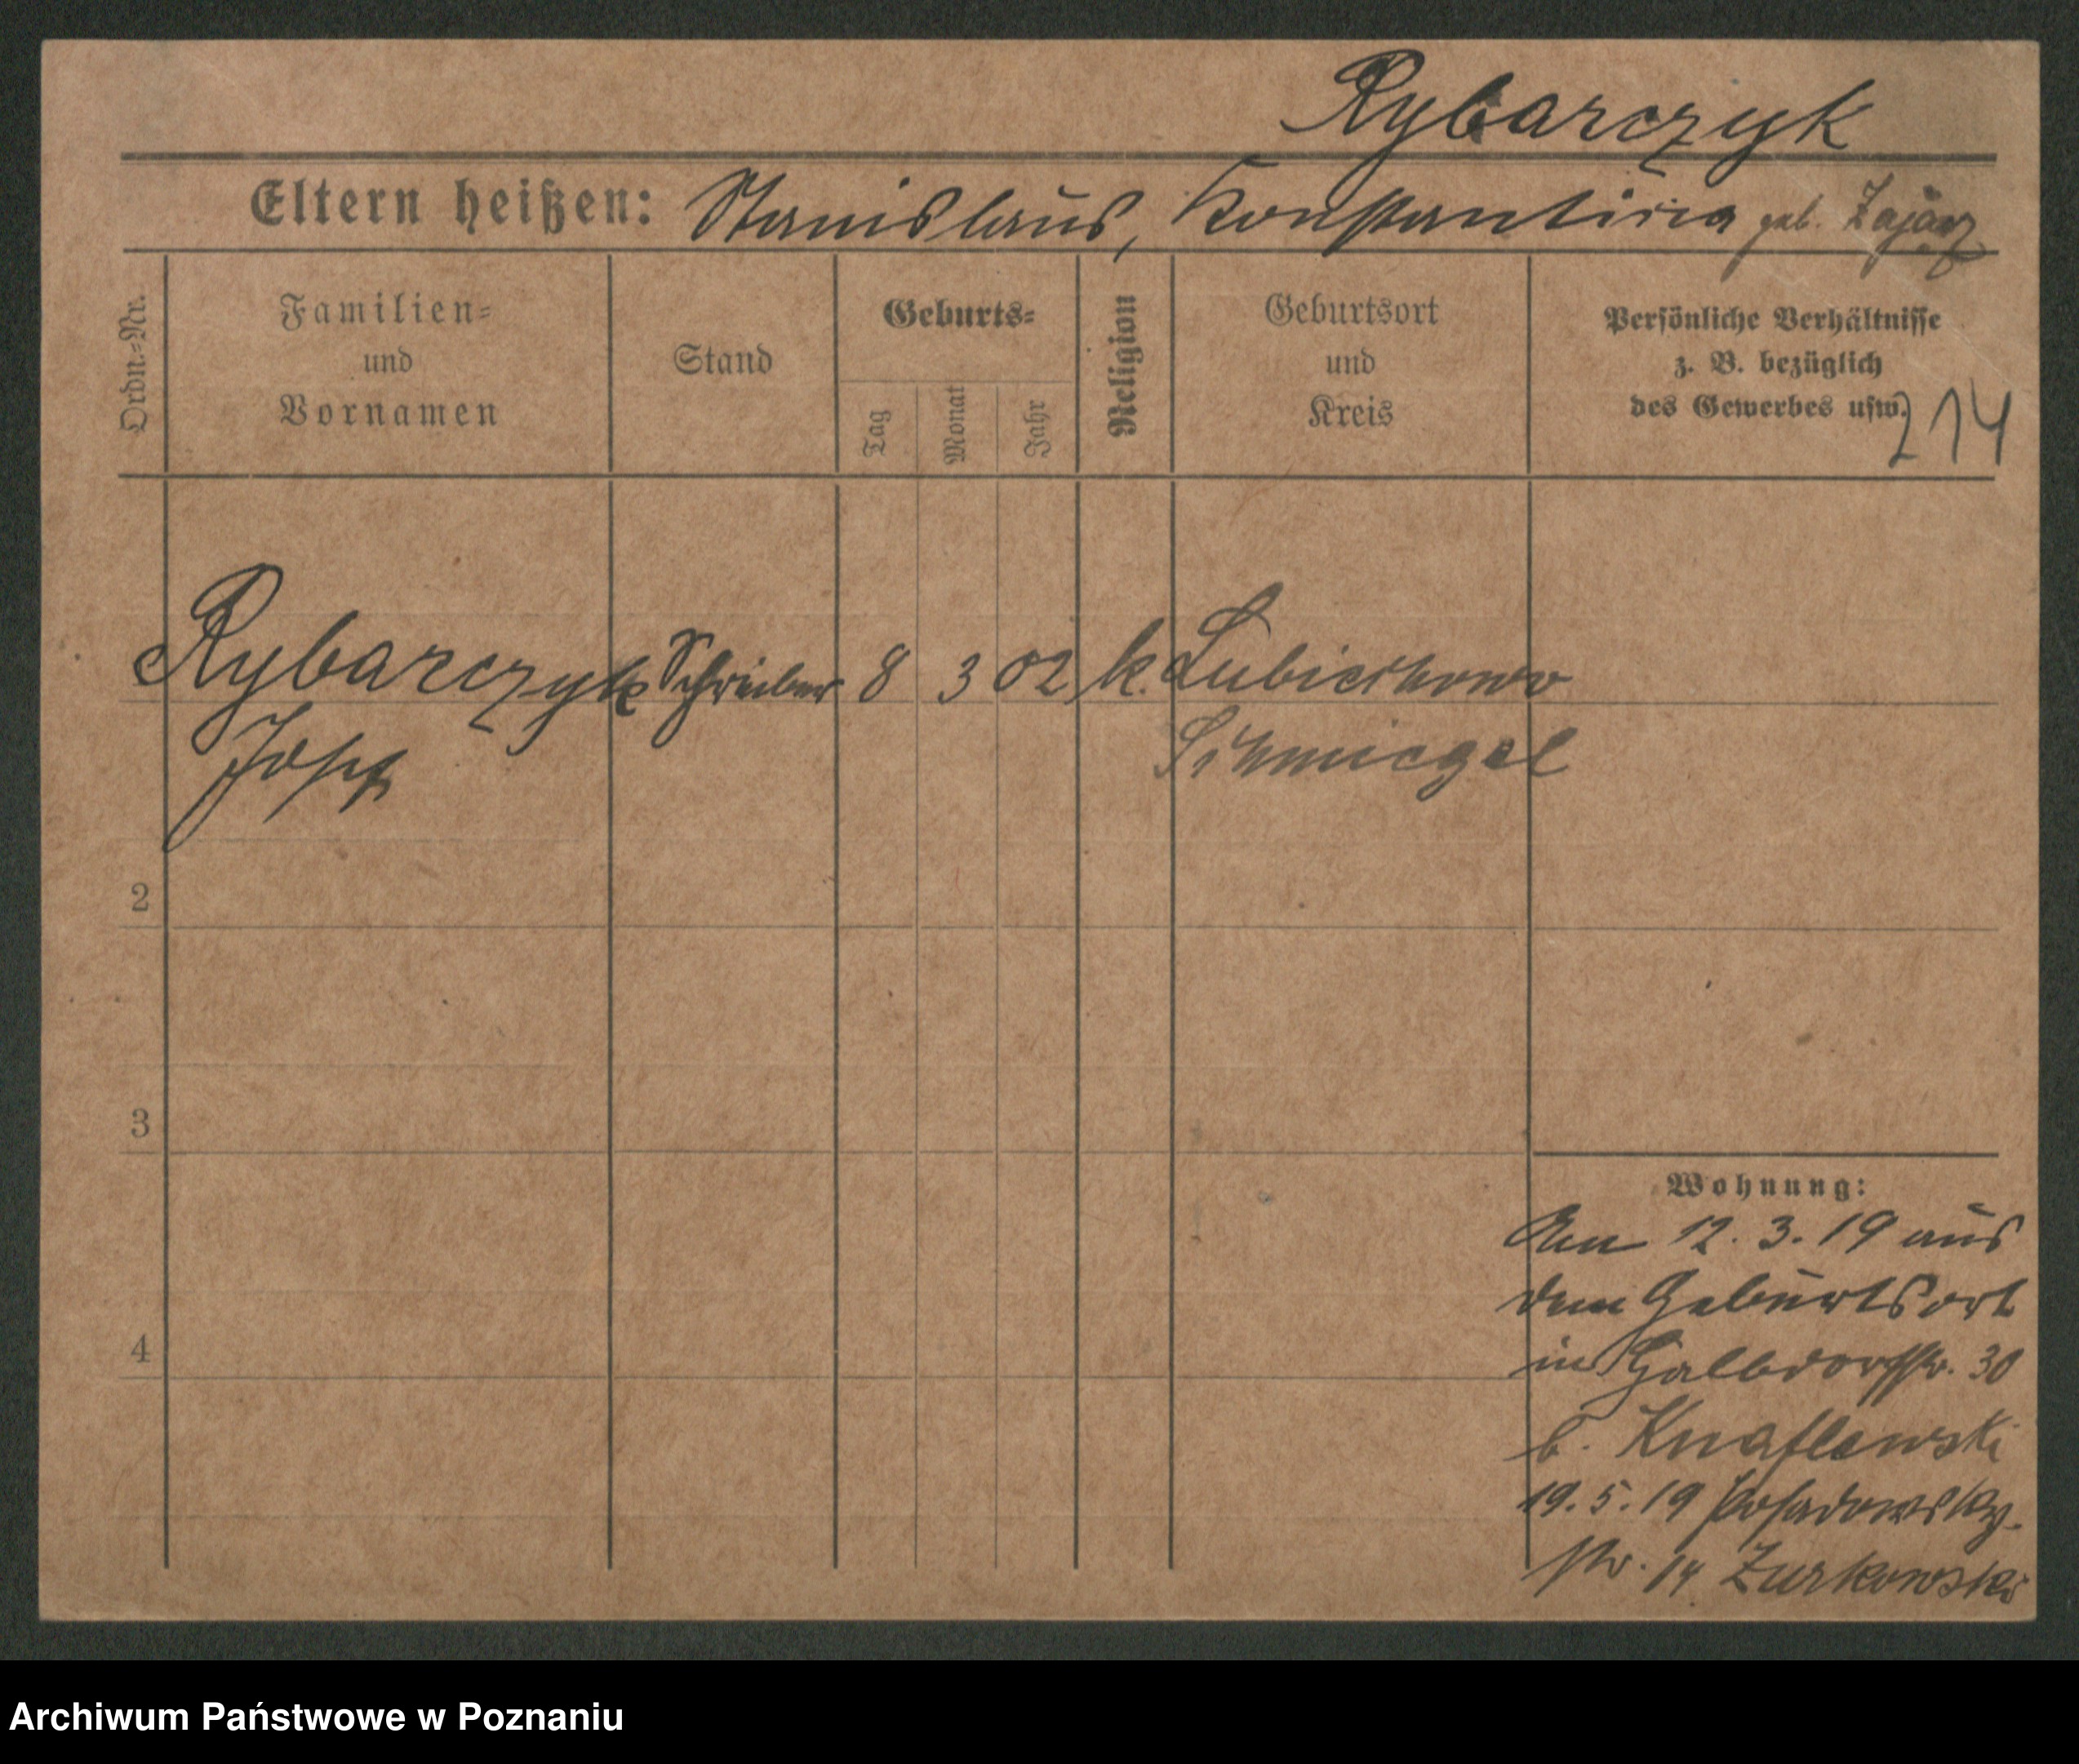 Rybarczyk
Eltern heißen: Stanislaus, Konstantina geb. Zając
Ordn.-Nr.
Familien-
und
Vornamen
Stand
Geburts-
Tag
Monat
Jahr
Religion
Geburtsort
und
Kreis
Persönliche Verhältnisse
z. B. bezüglich
des Gewerbes usw.
214
Rybarczyk Schreiber 8 3 02 k. Lubiechowo
Josef Schmiegel
2
3
4
Wohnung:
Am 12. 3. 19 aus
dem Geburtsort
in Halbdorfstr. 30
b. Knaflewski
19. 5. 19 Posadowsky-
str. 14 Zurkowski
Archiwum Państwowe w Poznaniu